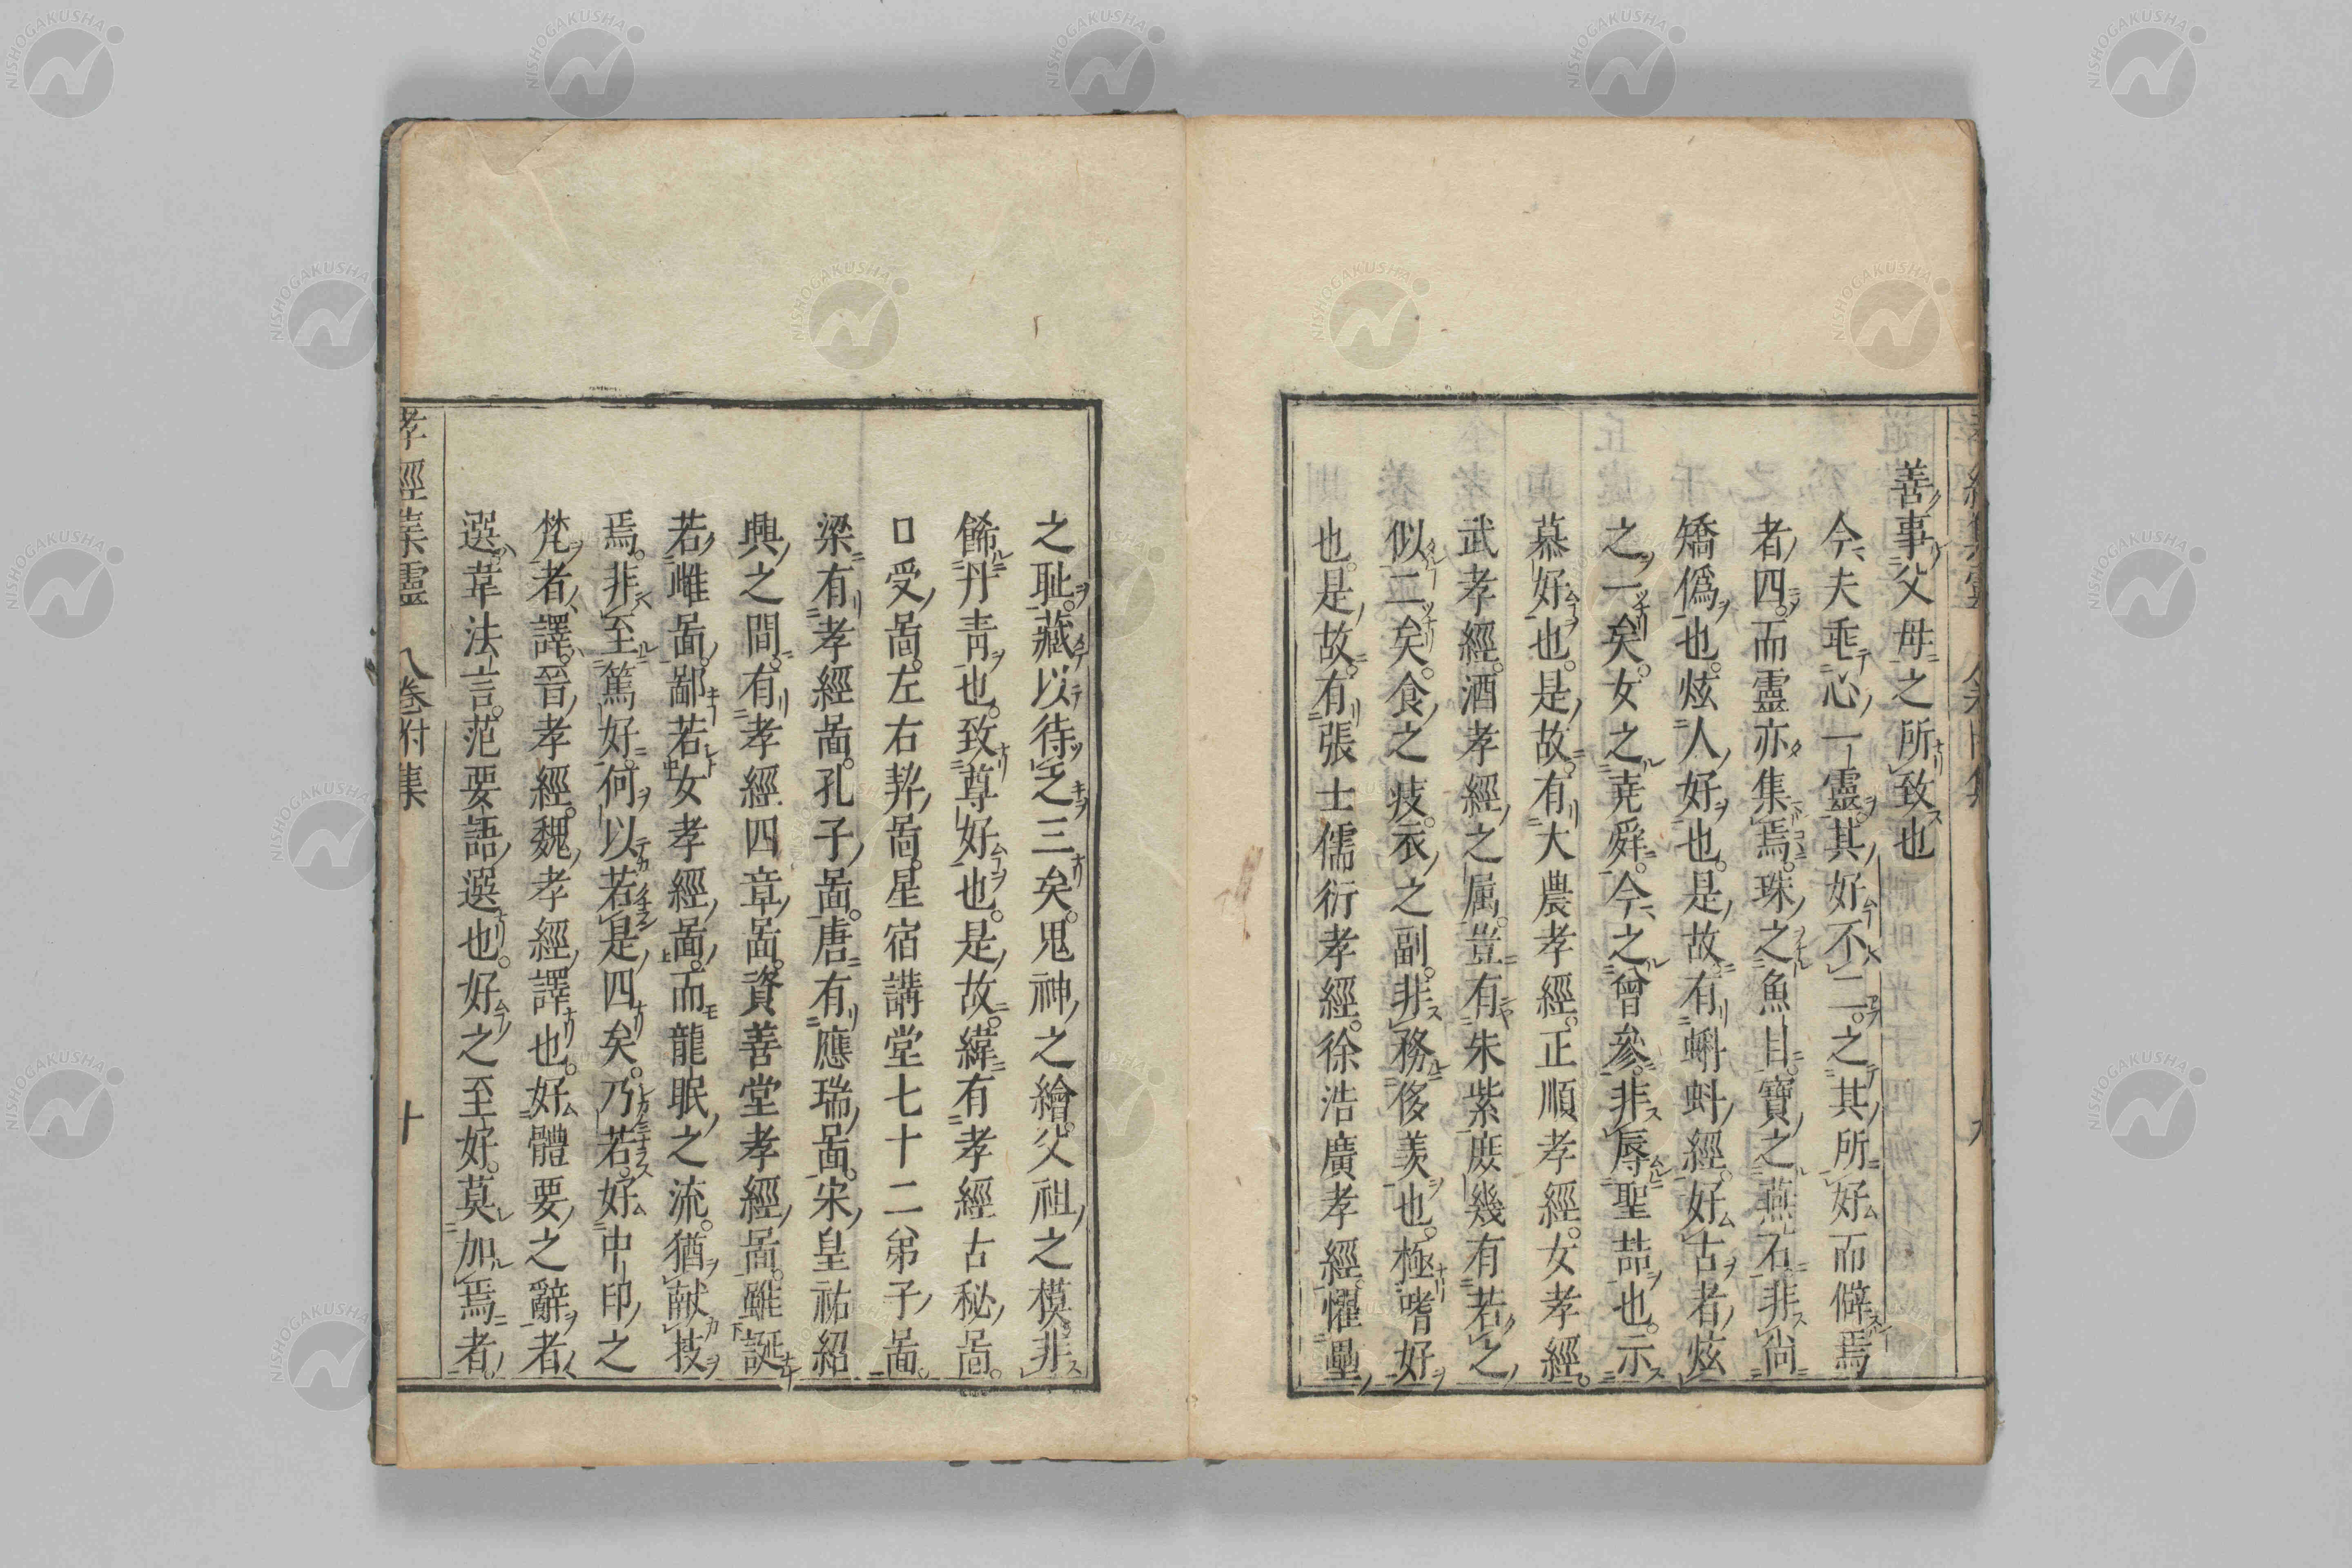 善事父母之所致也
今夫乖心一靈其好不二之其所好而僻焉
者四而靈亦集焉珠之魚目寶之燕石非尚
矯僞也炫人好也是故有蝌蚪經好古者炫
之一矣女之堯舜今之曾參非辱聖喆也示
慕好也是故有大農孝經正順孝經女孝經
武孝經酒孝經之屬豈有朱紫庻幾有若之
似二矣食之痎衣之副非務侈羡也極嗜好
也是故有張士儒衍孝經徐浩廣孝經懼壘
之耻藏以待乏三矣鬼神之繪父祖之模非
餙丹青也致尊好也是故緯有孝經古秘啚
口受啚左右契啚星宿講堂七十二弟子啚
梁有孝經啚孔子啚唐有應瑞啚宋皇祐紹
興之間有孝經四章啚資善堂孝經啚雖誕
若雌啚鄙若女孝經啚而龍眠之流猶献技
焉非至篤好何以若是四矣乃若好中印之
梵者譯晉孝經魏孝經譯也好體要之辭者
選韋法言范要語選也好之至好莫加焉者
孝經集靈 卷附集 十